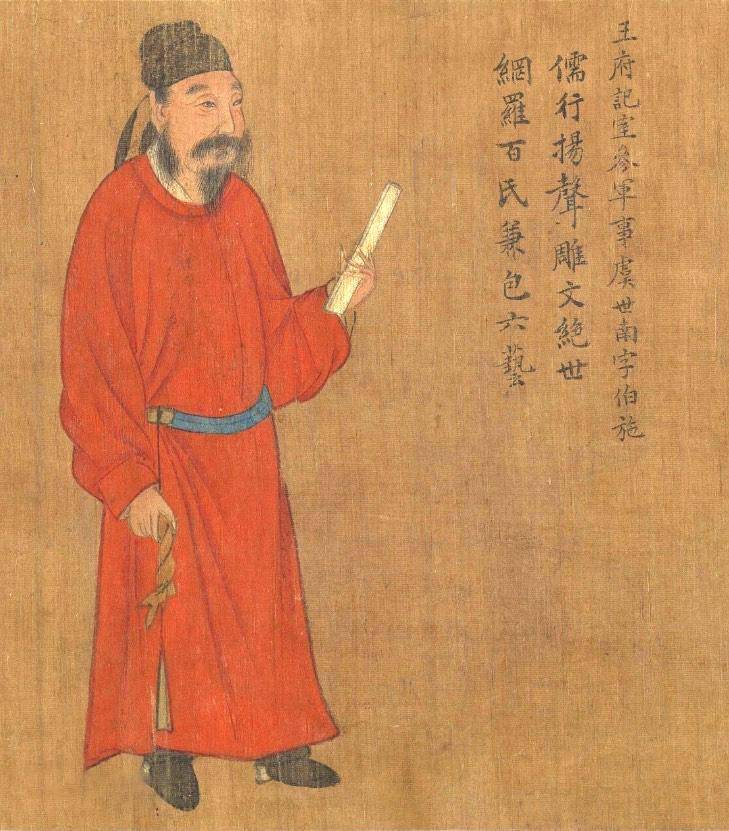 王府記室參軍事虞世南字伯施
儒行揚聲雕文絶世
網羅百氏兼包六藝